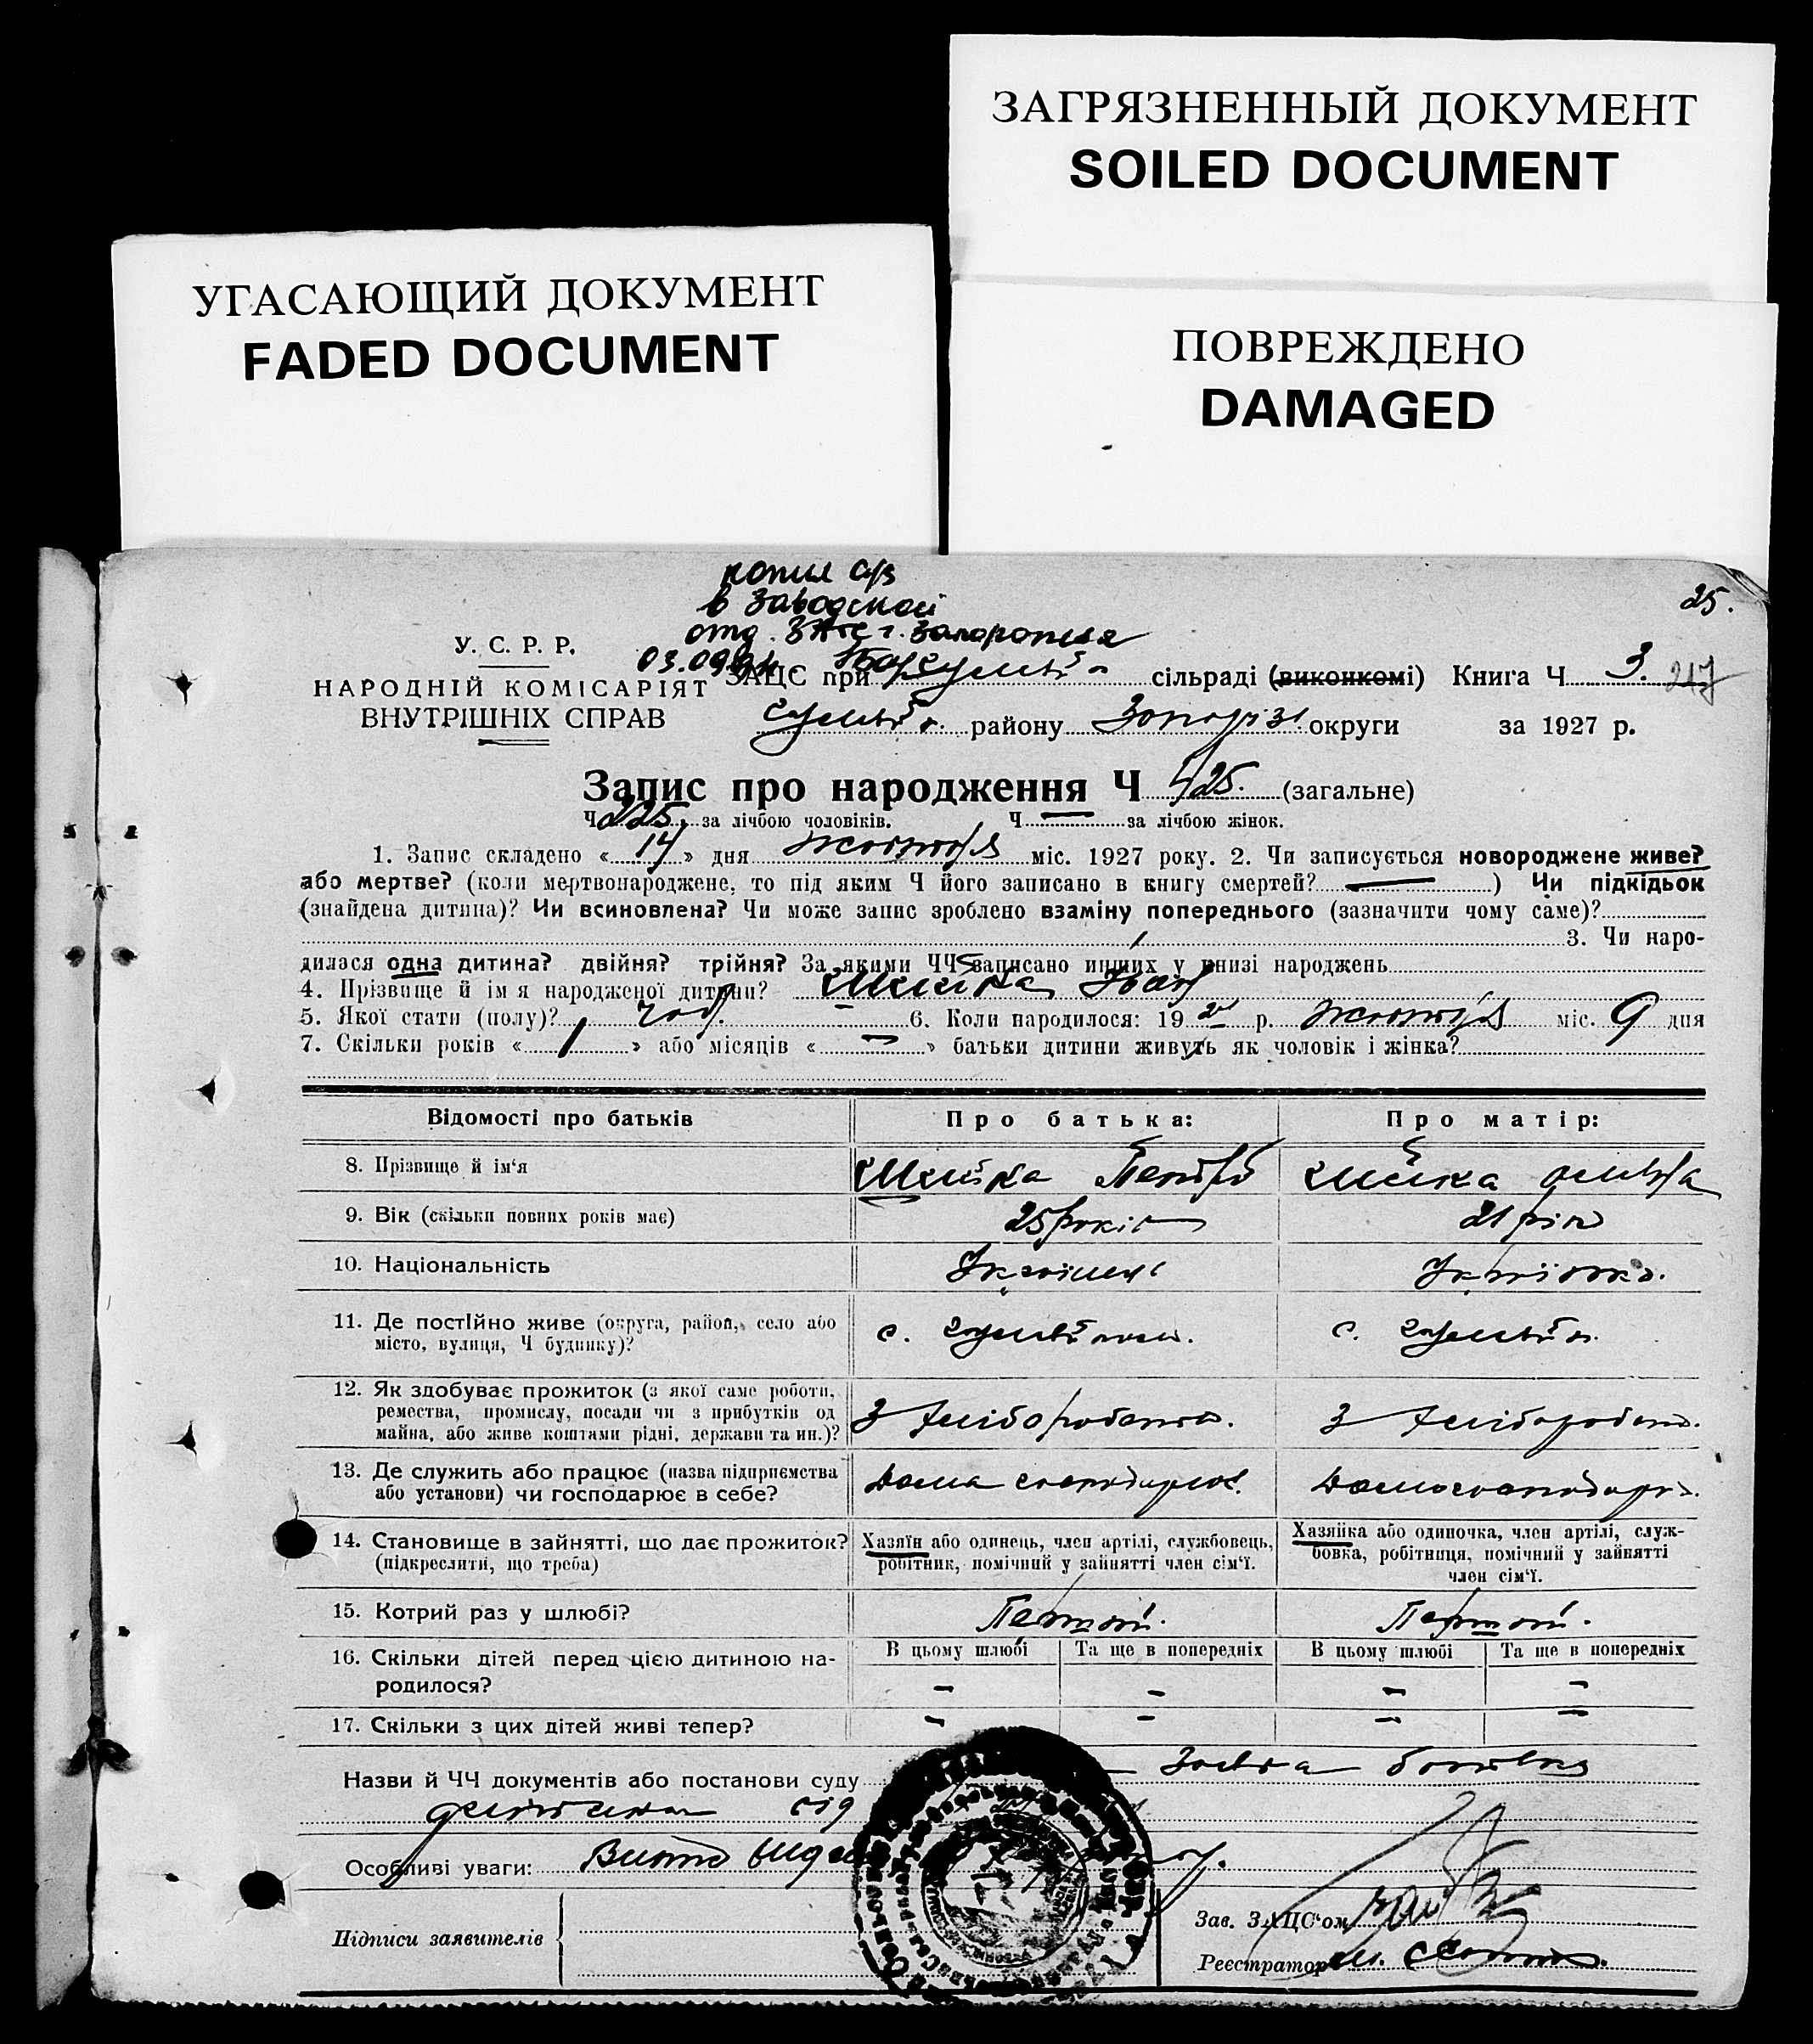 ЗАГРЯЗНЕННЫЙ ДОКУМЕНТ
SOILED DOCUMENT
УГАСАЮЩИЙ ДОКУМЕНТ
FADED DOCUMENT
ПОВРЕЖДЕНО
DAMAGED
копия а/з
в Заводской
отд. ЗАГС г. Запорожья
25.
У. С. Р. Р.
НАРОДНІЙ КОМІСАРІЯТ
ВНУТРІШНІХ СПРАВ
ЗАЦС при сільраді (виконкомі) Книга Ч 3. 217
району Запоріз. округи за 1927 р.
Запис про народження Ч 425. (загальне)
Ч 225. за лічбою чоловіків. Ч — за лічбою жінок.
1. Запис складено « 14 » дня жовтня міс. 1927 року. 2. Чи записується новороджене живе?
або мертве? (коли мертвонароджене, то під яким Ч його записано в книгу смертей? — ) Чи підкідьок
(знайдена дитина)? Чи всиновлена? Чи може запис зроблено взаміну попереднього (зазначити чому саме)?
3. Чи наро-
дилася одна дитина? двійня? трійня? За якими ЧЧ записано инших у книзі народжень
4. Прізвище й імя народженої дитини? Іван
5. Якої стати (полу)? чол. 6. Коли народилося: 19 р. жовтня міс. 9 дня
7. Скільки років « 1 » або місяців « — » батьки дитини живуть як чоловік і жінка?
Відомості про батьків
Про батька:
Про матір:
8. Прізвище й ім'я
Петро
9. Вік (скільки повних років має)
25 років
21 рік
10. Національність
Українець
Українка.
11. Де постійно живе (округа, район, село або
місто, вулиця, Ч будинку)?
с.
с.
12. Як здобуває прожиток (з якої саме роботи,
ремества, промислу, посади чи з прибутків од
майна, або живе коштами рідні, держави та ин.)?
З хліборобства.
З хліборобства.
13. Де служить або працює (назва підприємства
або установи) чи господарює в себе?
14. Становище в зайнятті, що дає прожиток?
(підкреслити, що треба)
Хазяїн або одинець, член артілі, службовець,
робітник, помічний у зайнятті член сім'ї.
Хазяйка або одиночка, член артілі, служ-
бовка, робітниця, помічний у зайнятті
член сім'ї.
15. Котрий раз у шлюбі?
Перший.
Перший.
16. Скільки дітей перед цією дитиною на-
родилося?
В цьому шлюбі
Та ще в попередніх
В цьому шлюбі
Та ще в попередніх
–
–
–
–
17. Скільки з цих дітей живі тепер?
–
–
–
–
Назви й ЧЧ документів або постанови суду Заява батька
від
Особливі уваги:
Підписи заявителів
Зав. ЗАЦС'ом
Реєстратор